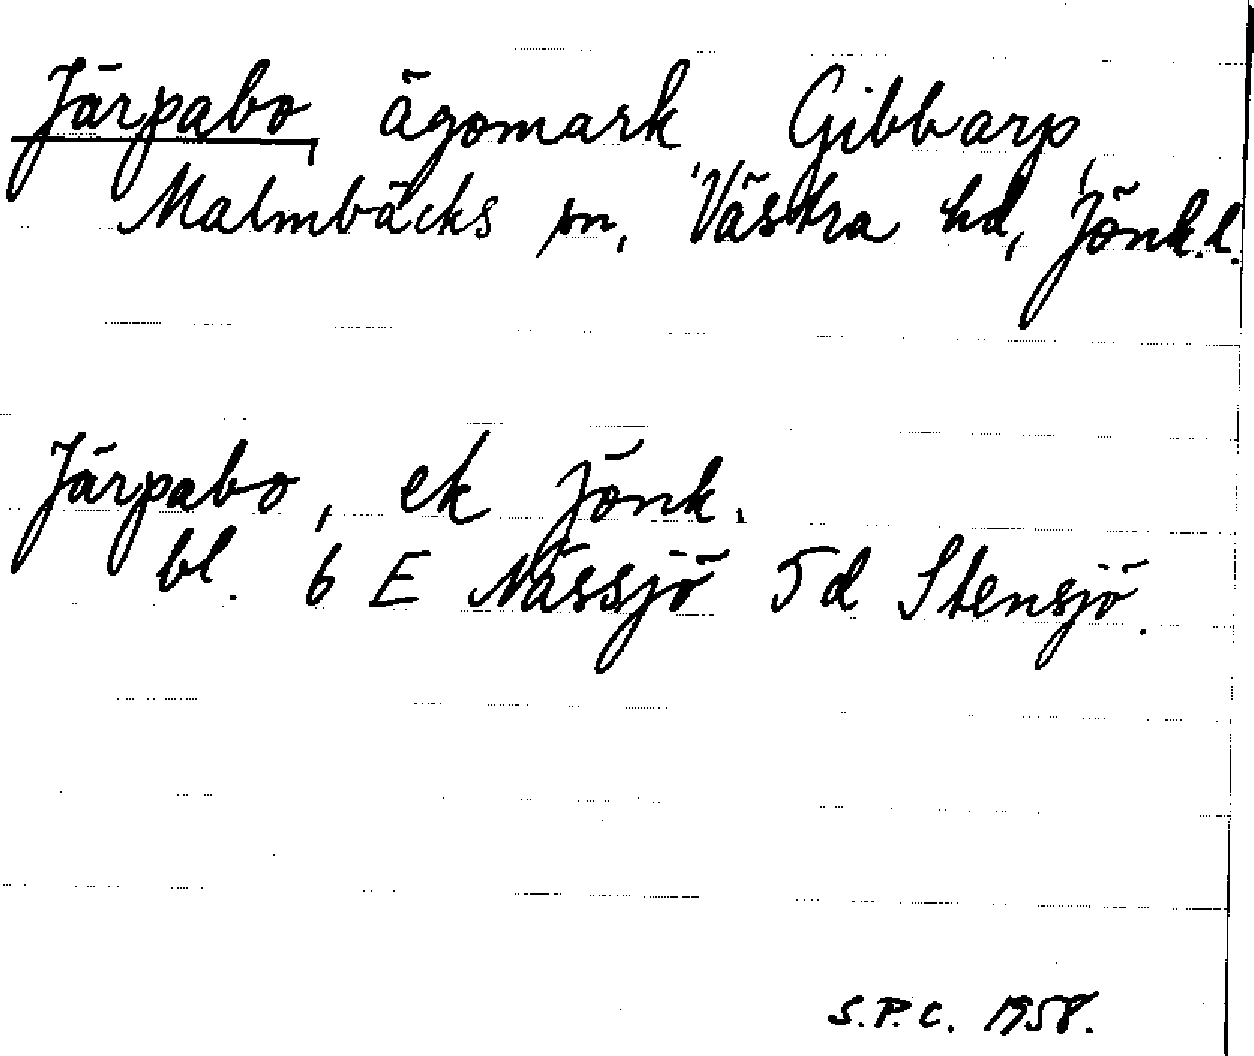 Järpabo, ägomark Gibbarp,
Malmbäcks sn, Västra hd, Jönk.l.
Järpabo, ek Jönk.
bl. 6 E Nässjö 5d Stensjö.
S.P.C. 1958.